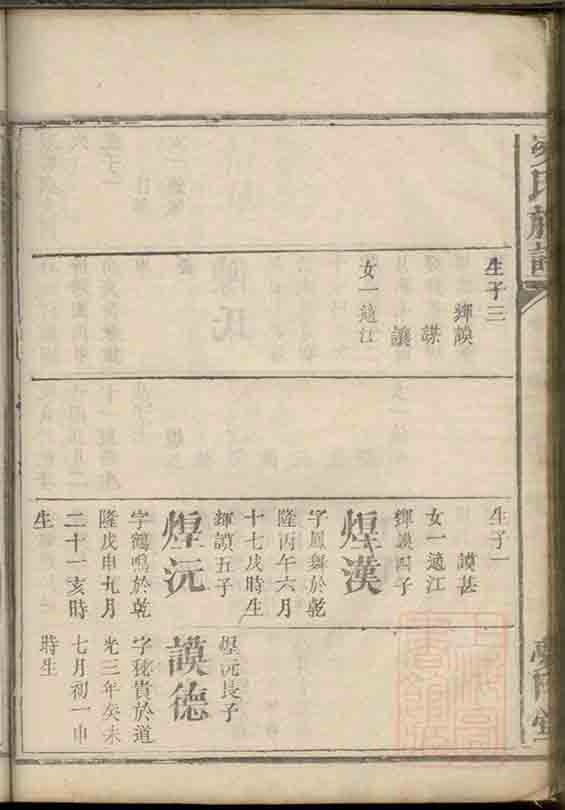 氏族譜
生子三
輝謨
謀
讓
女一適江
生子一
謨甚
女一適江
輝謨四子
煌漢
字鳳舞於乾
隆丙午六月
十七戌時生
輝謨五子
煌沅
字鶴鳴於乾
隆戊申九月
二十一亥時
生
煌沅長子
謨德
字秘貴於道
光三年癸未
七月初一申
時生
堂